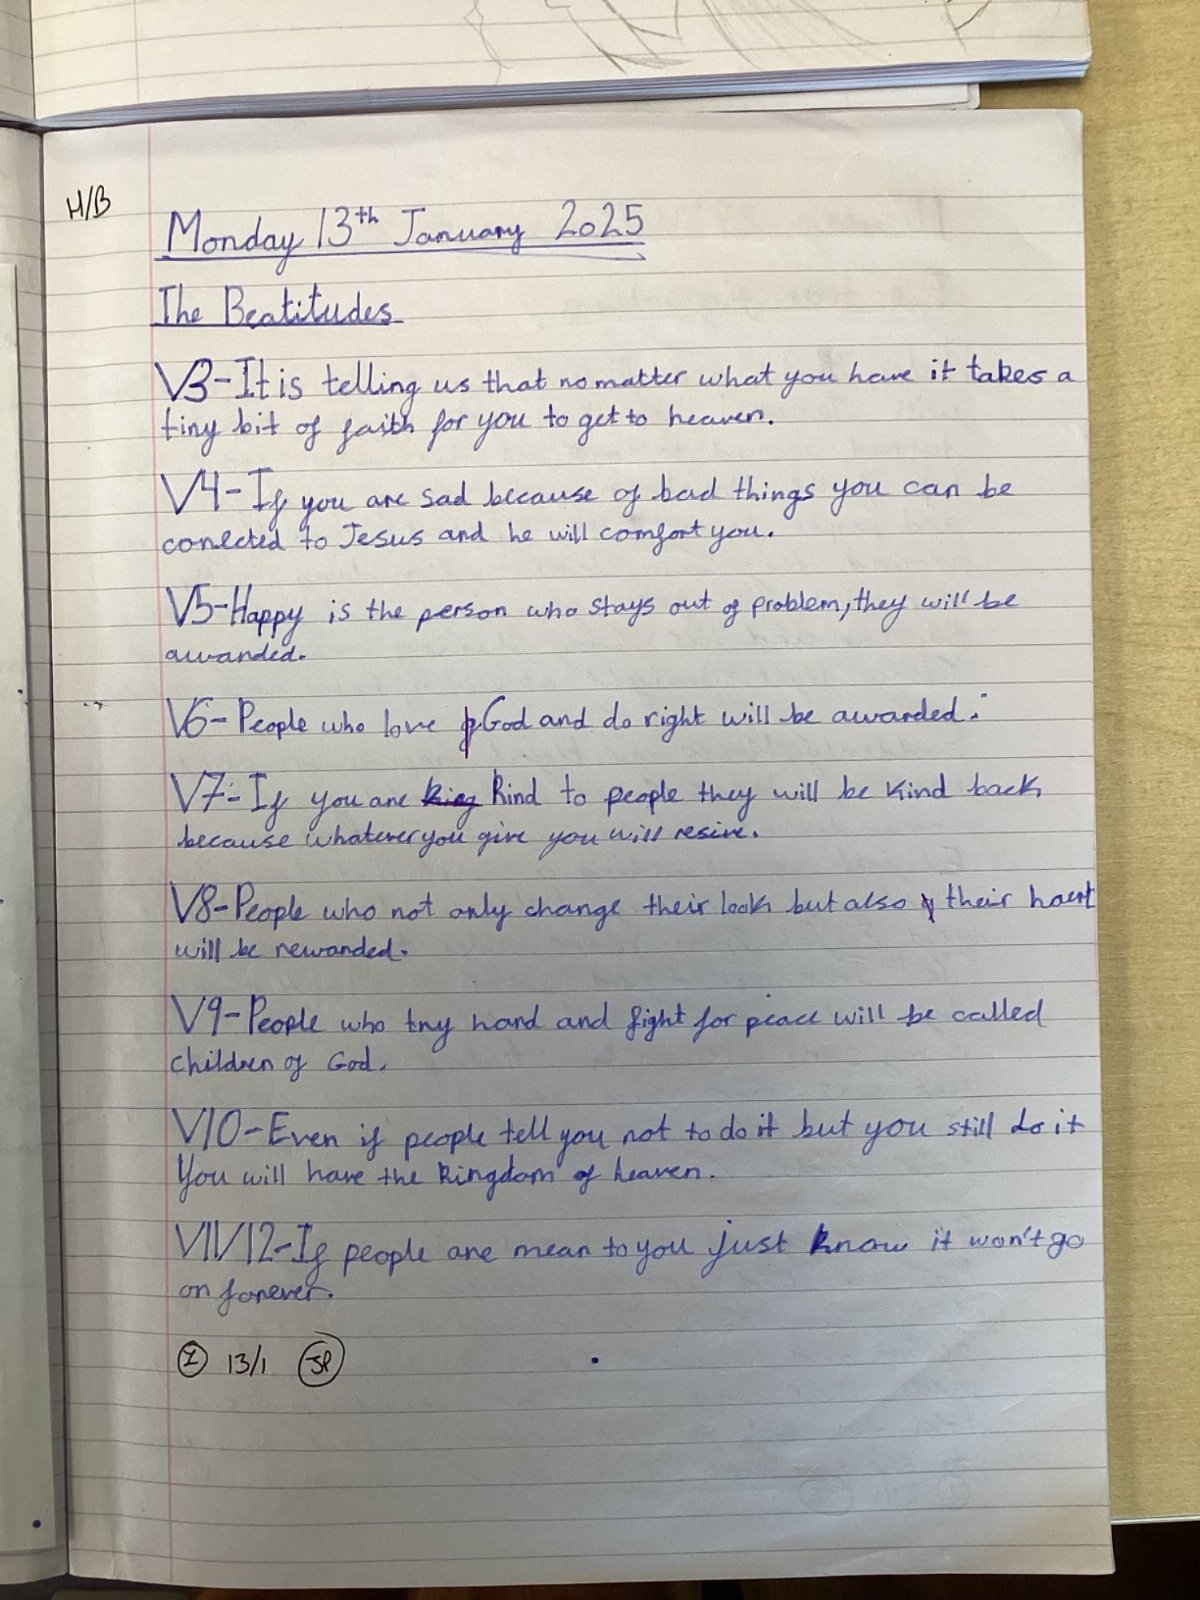 H/B
Monday 13th January 2025
The Beatitudes
V3-It is telling us that no matter what you have it takes a
tiny bit of faith for you to get to heaven.
V4-If you are sad because of bad things you can be
conected to Jesus and he will comfort you.
V5-Happy is the person who stays out of problem, they will be
awarded.
V6-People who love God and do right will be awarded.
V7-If you are king kind to people they will be kind back
because whatever you give you will resive.
V8-People who not only change their look but also their haert
will be rewarded.
V9-People who try hard and fight for peace will be called
children of God.
V10-Even if people tell you not to do it but you still do it
You will have the kingdom of heaven.
V11/12-If people are mean to you just know it won't go
on forever.
I 13/1 JP